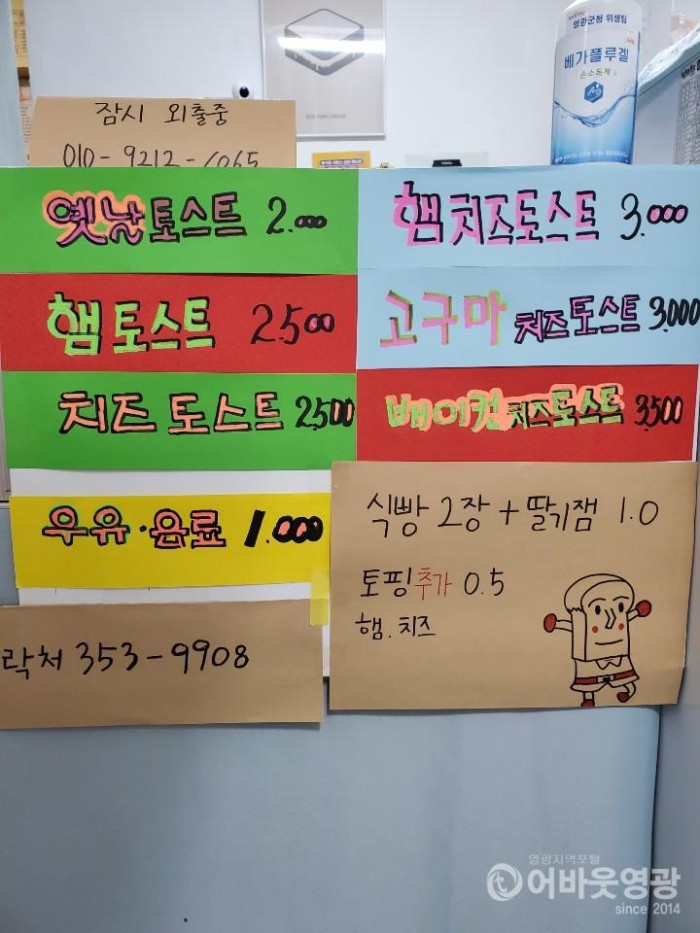 영광군청 위생팀
베가플루겔
손소독제
잠시 외출중
010-9212-6065
옛날토스트 2.000
햄치즈토스트 3.000
햄토스트 2.500
고구마 치즈토스트 3.000
치즈토스트 2,500
베이컨치즈토스트 3,500
우유·음료 1.000
식빵 2장 + 딸기잼 1.0
토핑추가 0.5
햄.치즈
락처 353-9908
영광지역포털
어바웃영광
since 2014